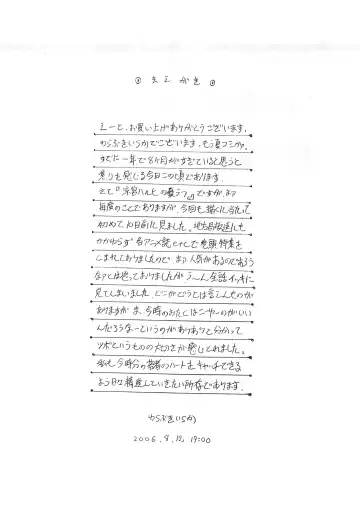 まえがき
えーと、お買い上げありがとうございます。
わらぶきいちかでございます。もう夏コミか。
すでに一年で8ヶ月がすぎていると思うと
焦りを感じる今日この頃であります。
さて『涼宮ハルヒの憂うつ』ですが、まあ
毎度のことでありますが、今回も描くに当たって
初めて10日前に見ました。地方局放送にも
かかわらず各アニメ誌とかでも巻頭特集を
くまれておりましたので、まあ人気があるのであろう
なあとは思っておりましたが、う〜ん全話イッキに
見てしまいました。どこがどうとは言えんものが
ありますが、ま、今時のおたくはこーゆーのがいい
んだろうなーというのがありありと分かって
ツボというものの大切さが感じとれました。
私も今時分の若者のハートをキャッチできる
よう日々精進していきたい所存であります。
わらぶきいちか
2006.8.12. 19:00